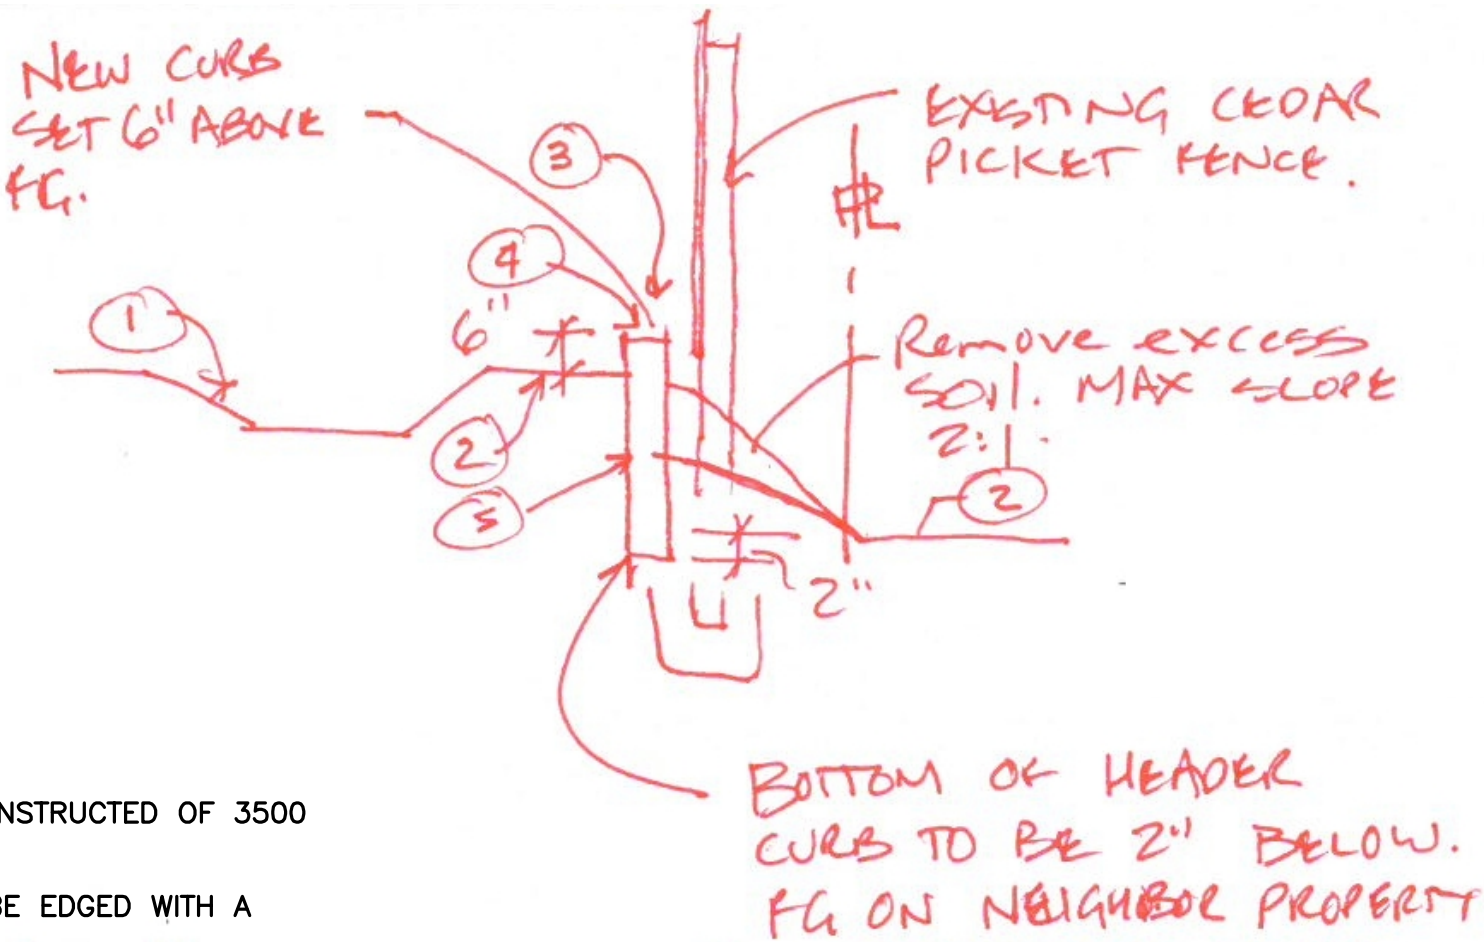 NEW CURB
SET 6" ABOVE
FG.
3
4
1
6"
2
5
EXISTING CEDAR
PICKET FENCE.
PL
Remove excess
SOIL. MAX SLOPE
2:1.
2
2"
BOTTOM OF HEADER
CURB TO BE 2" BELOW.
FG ON NEIGHBOR PROPERTY
NSTRUCTED OF 3500
BE EDGED WITH A